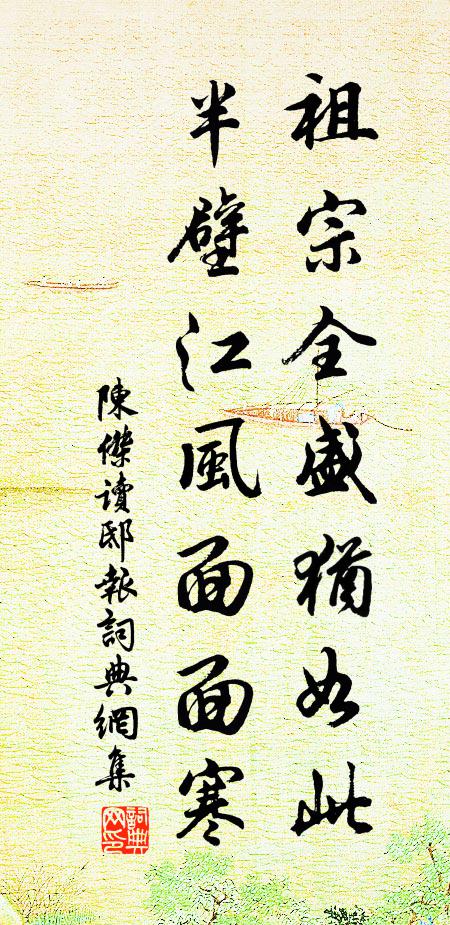 祖宗全盛猶如此
半壁江風面面寒
陳傑讀邸報詞典網集
詞典網印